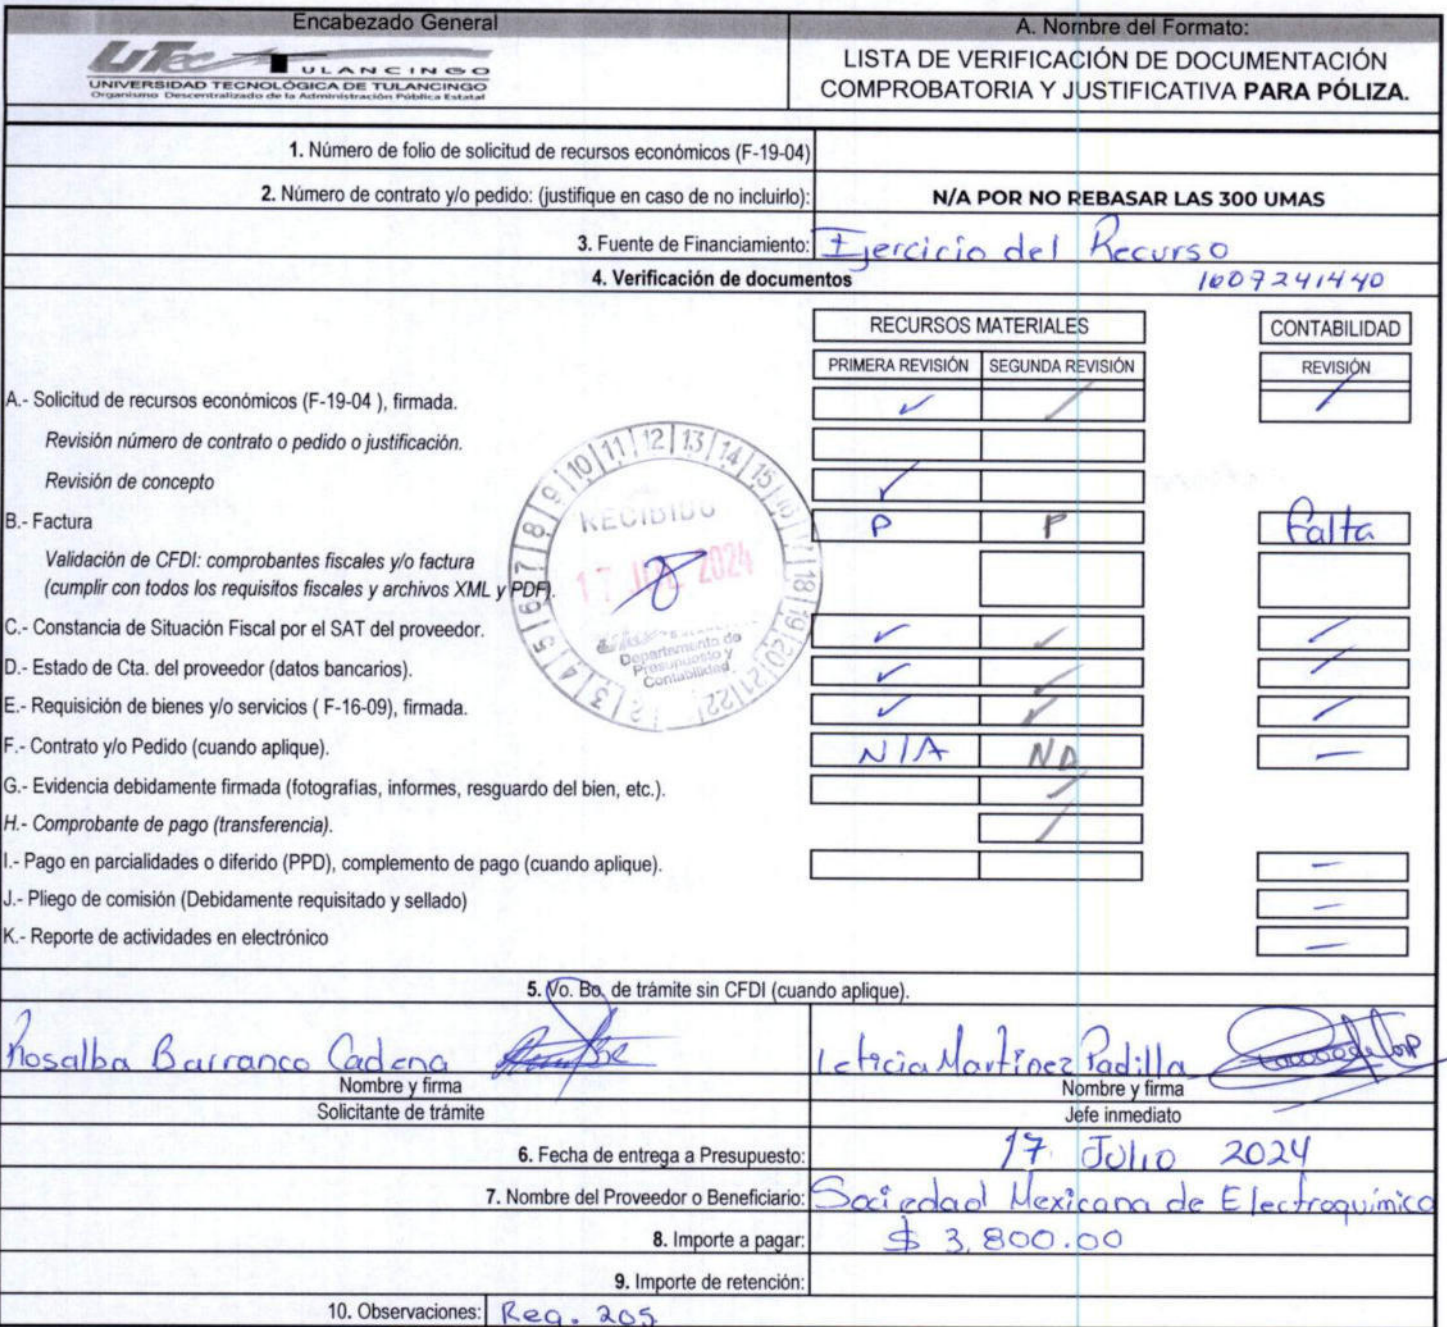 Encabezado General
A. Nombre del Formato:
UTec TULANCINGO
UNIVERSIDAD TECNOLÓGICA DE TULANCINGO
Organismo Descentralizado de la Administración Pública Estatal
LISTA DE VERIFICACIÓN DE DOCUMENTACIÓN
COMPROBATORIA Y JUSTIFICATIVA PARA PÓLIZA.
1. Número de folio de solicitud de recursos económicos (F-19-04)
2. Número de contrato y/o pedido: (justifique en caso de no incluirlo): N/A POR NO REBASAR LAS 300 UMAS
3. Fuente de Financiamiento: Ejercicio del Recurso
4. Verificación de documentos 1007241440
RECURSOS MATERIALES CONTABILIDAD
PRIMERA REVISIÓN SEGUNDA REVISIÓN REVISIÓN
A.- Solicitud de recursos económicos (F-19-04 ), firmada. ✓ / /
Revisión número de contrato o pedido o justificación.
Revisión de concepto ✓
B.- Factura P P Falta
Validación de CFDI: comprobantes fiscales y/o factura
(cumplir con todos los requisitos fiscales y archivos XML y PDF).
C.- Constancia de Situación Fiscal por el SAT del proveedor. ✓ ✓ /
D.- Estado de Cta. del proveedor (datos bancarios). ✓ ✓ /
E.- Requisición de bienes y/o servicios ( F-16-09), firmada. ✓ ✓ /
F.- Contrato y/o Pedido (cuando aplique). N/A NA —
G.- Evidencia debidamente firmada (fotografías, informes, resguardo del bien, etc.). ✓
H.- Comprobante de pago (transferencia). /
I.- Pago en parcialidades o diferido (PPD), complemento de pago (cuando aplique). —
J.- Pliego de comisión (Debidamente requisitado y sellado) —
K.- Reporte de actividades en electrónico —
RECIBIDO
17 JUL 2024
Departamento de
Presupuesto y
Contabilidad
2 3 4 5 6 7 8 9 10 11 12 13 14 15 16 17 18 19 20 21 22
5. Vo. Bo. de trámite sin CFDI (cuando aplique).
Rosalba Barranco Cadena
Leticia Martínez Padilla
Nombre y firma
Nombre y firma
Solicitante de trámite
Jefe inmediato
6. Fecha de entrega a Presupuesto: 17 Julio 2024
7. Nombre del Proveedor o Beneficiario: Sociedad Mexicana de Electroquímica
8. Importe a pagar: $ 3,800.00
9. Importe de retención:
10. Observaciones: Req. 205